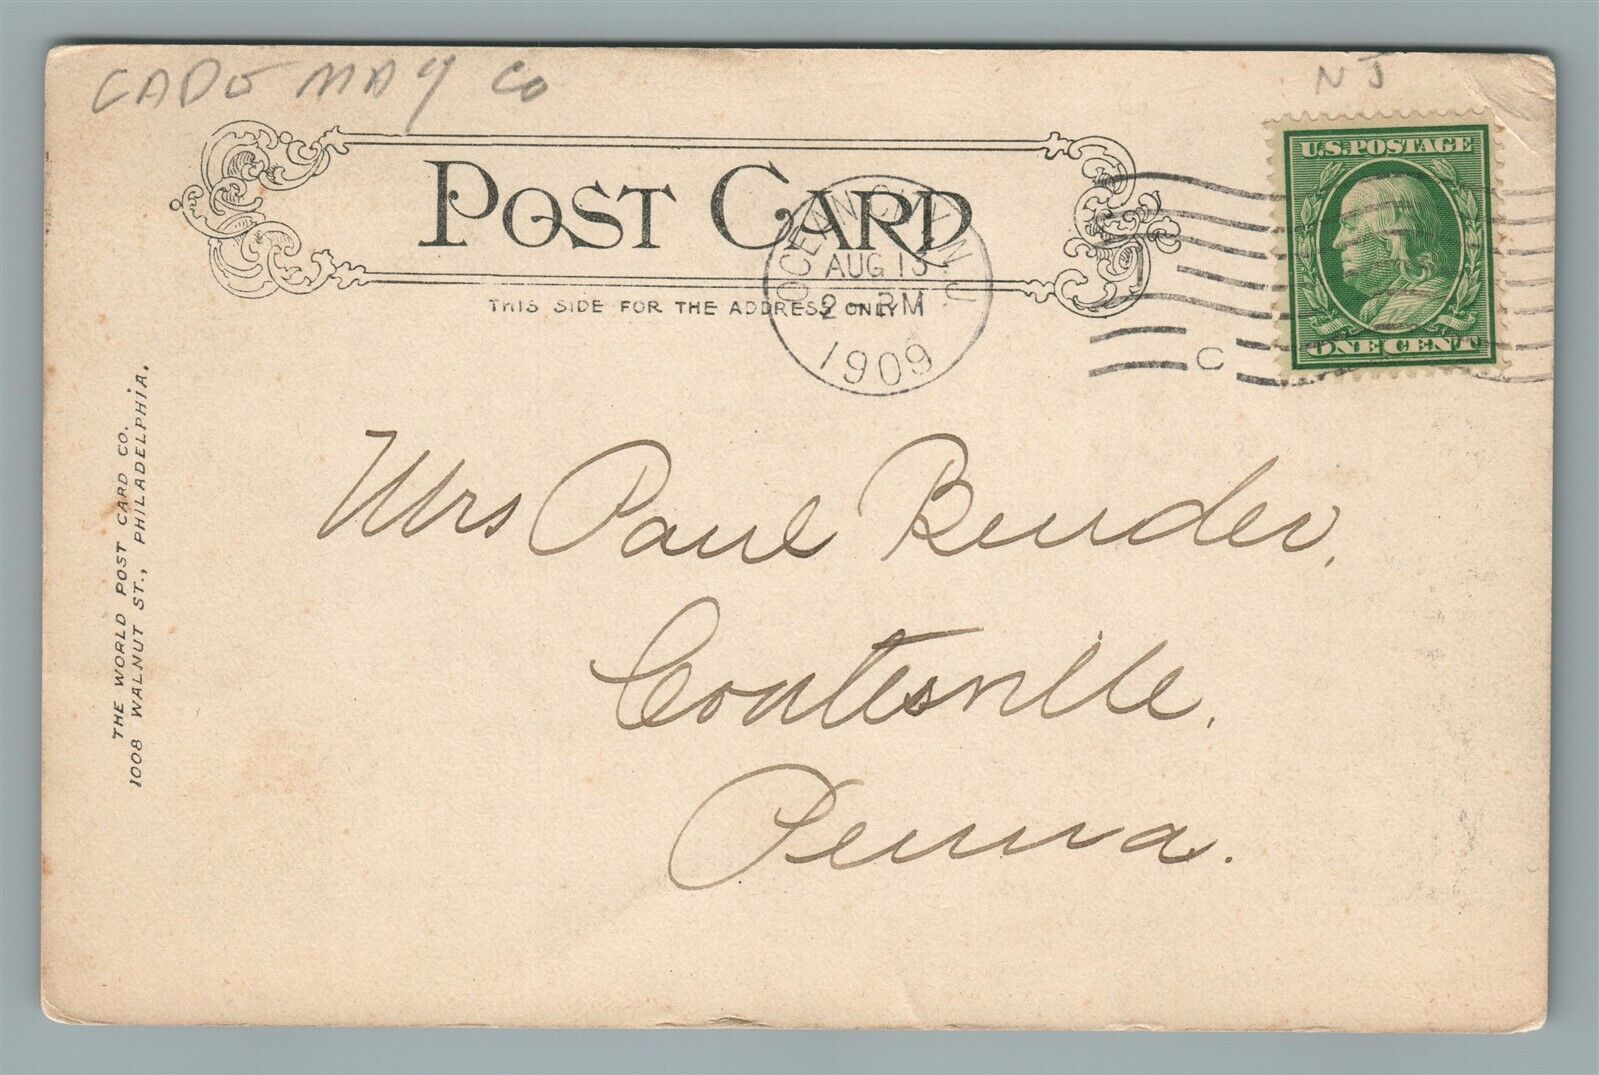 CAPE MAY Co
NJ
U.S. POSTAGE
POST CARD
OCEAN CITY, N.J.
AUG 13
2 - PM
1909
THIS SIDE FOR THE ADDRESS ONLY
ONE CENT
C
THE WORLD POST CARD CO.
1008 WALNUT ST., PHILADELPHIA.
Mrs Paul Bender,
Coatesville,
Penna.